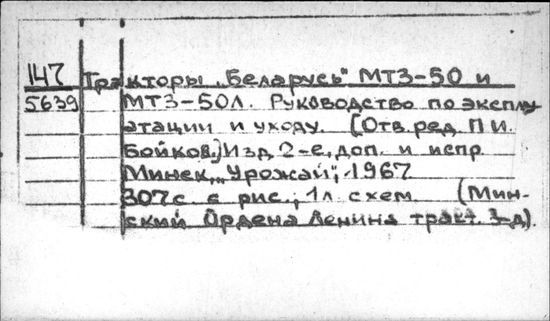 147 Тракторы „Беларусь" МТЗ-50 и
5639 МТЗ-50Л. Руководство по эксплу
атации и уходу. (Отв. ред. П И.
Бойков.) Изд 2-е, доп. и испр
Минск, „Урожай", 1967
307 с. с рис.; 1 л. схем. (Мин-
ский Ордена Ленина тракт. з-д).